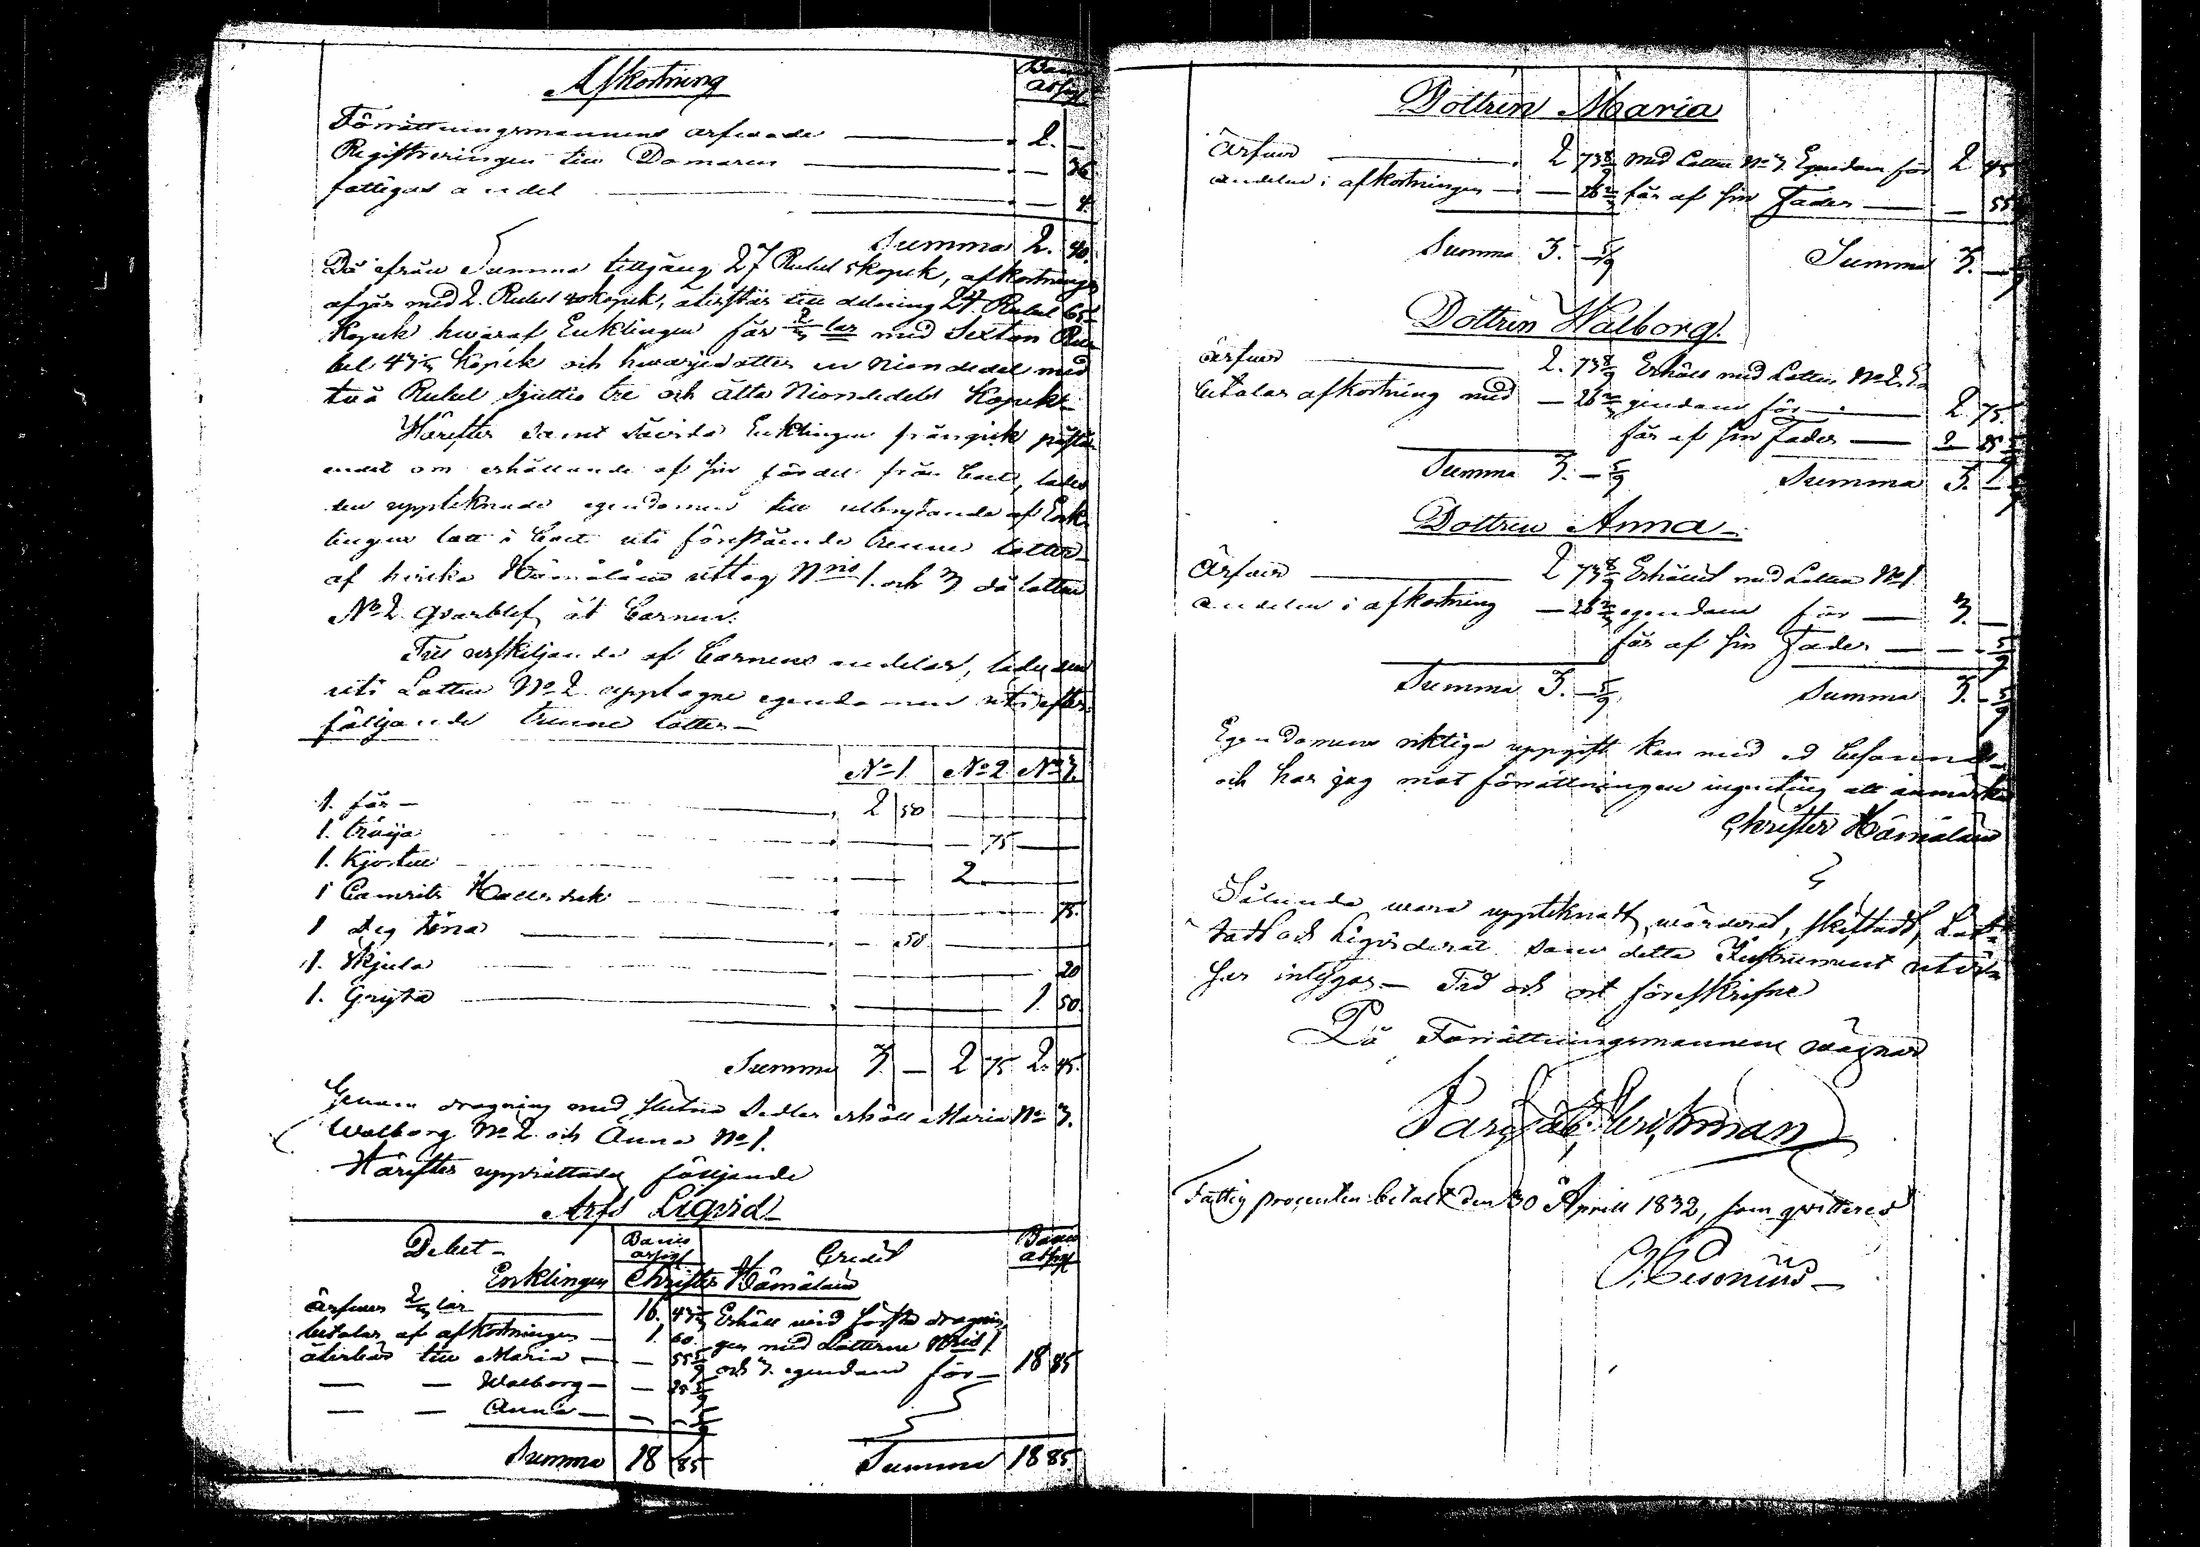 Afkortning
Banco
Assign
Förrättningsmannens arfwode 2. —
Registreringen till Domaren — 36
fattigas andel — 4.
Summa 2. 40.
Då ifrån Summa tillgång 27 Rubel 5 kopek, afkortningen
afgår med 2. Rubel 40 kopek, återstår till delning 24. Rubel 65
Kopek hwaraf Enklingen får 2/3 lar med Sexton Ru
bel 43 1/3 Kopek och hwarje dotter en Niondedel med
två Rubel Sjuttio tre och åtta Niondedels Kopek
Härefter samt sedan Enklingen frångick påstå
endet om erhållande af sin fördel från boet, lades
den upptecknade egendomen till utbrytande af Enk
lingens lott i boet uti förestående trenne lotter
af hwilka Hämäläin uttog Nris 1. och 3 då lotten
No 2 qvarblef åt barnen.
Till särskiljande af barnens andelar, lades den
uti Lotten No 2 upptagne egendomen uti efter
följande trenne lotter —
No 1. No 2 No 3.
1. får — 2 50
1. tröija — 75
1. Kjortell 2
1 Camritz Halsduk 75.
1 deg tina — 50
1. Skjula 20
1. Gryta 1. 50.
Summa 3. — 2 75 2. 45.
Genom dragning med slutna Sedlar erhöll Maria No 3.
Walborg No 2. och Anna No 1.
Härefter upprättades följande
Arfs Liqvid
Debet — Banco assign Credit Banco assign
Enklingen Christer Hämäläin
Ärfwer 2/3 lar 16. 43 1/3 Erhöll wid första dragnin
betalar af afkortningen — 1. 60. gen med Lotterne Nris 1
återbär till Maria — — 55 5/9 och 3. egendom för — 18 85
— — Walborg — — 25 5/9
— — Anna — — — 5/9
Summa 18 85 Summa 18 85.
Dottren Maria
Ärfwer 2 73 8/9 med Lotten No 3. Egendom för 2 45
andelen i afkortningen — — 26 2/3 får af sin Fader — — 55
Summa 3. — 5/9 Summa 3. — 5/9
Dottren Walborg.
Ärfwer 2. 73 8/9 Erhåll med Lotten No 2. E
betalar afkortning med — 26 2/3 gendom för — 2 75.
får af sin Fader — — 25 5/9
Summa 3. — 5/9 Summa 3. — 5/9
Dottren Anna —
Ärfwer 2 73 8/9 Erhållit med Lotten No 1
andelen i afkortning — 26 2/3 egendom för — 3. —
får af sin Fader — — — 5/9
Summa 3. — 5/9 Summa 3. — 5/9
Egendomens riktiga uppgift kan med ed besannas
och har jag mot förrättningen ingenting att anmärka
Christer Hämäläin
Sålunda wara upptecknadt, wärderat, skiftadt, Lot
tadt och Liqviderat som detta Instrument utwi
sar intygas — Tid och ort föreskrifne
På Förrättningsmannens wägnar
Fattig procenten betalt den 30 Aprill 1832, som qvitteras